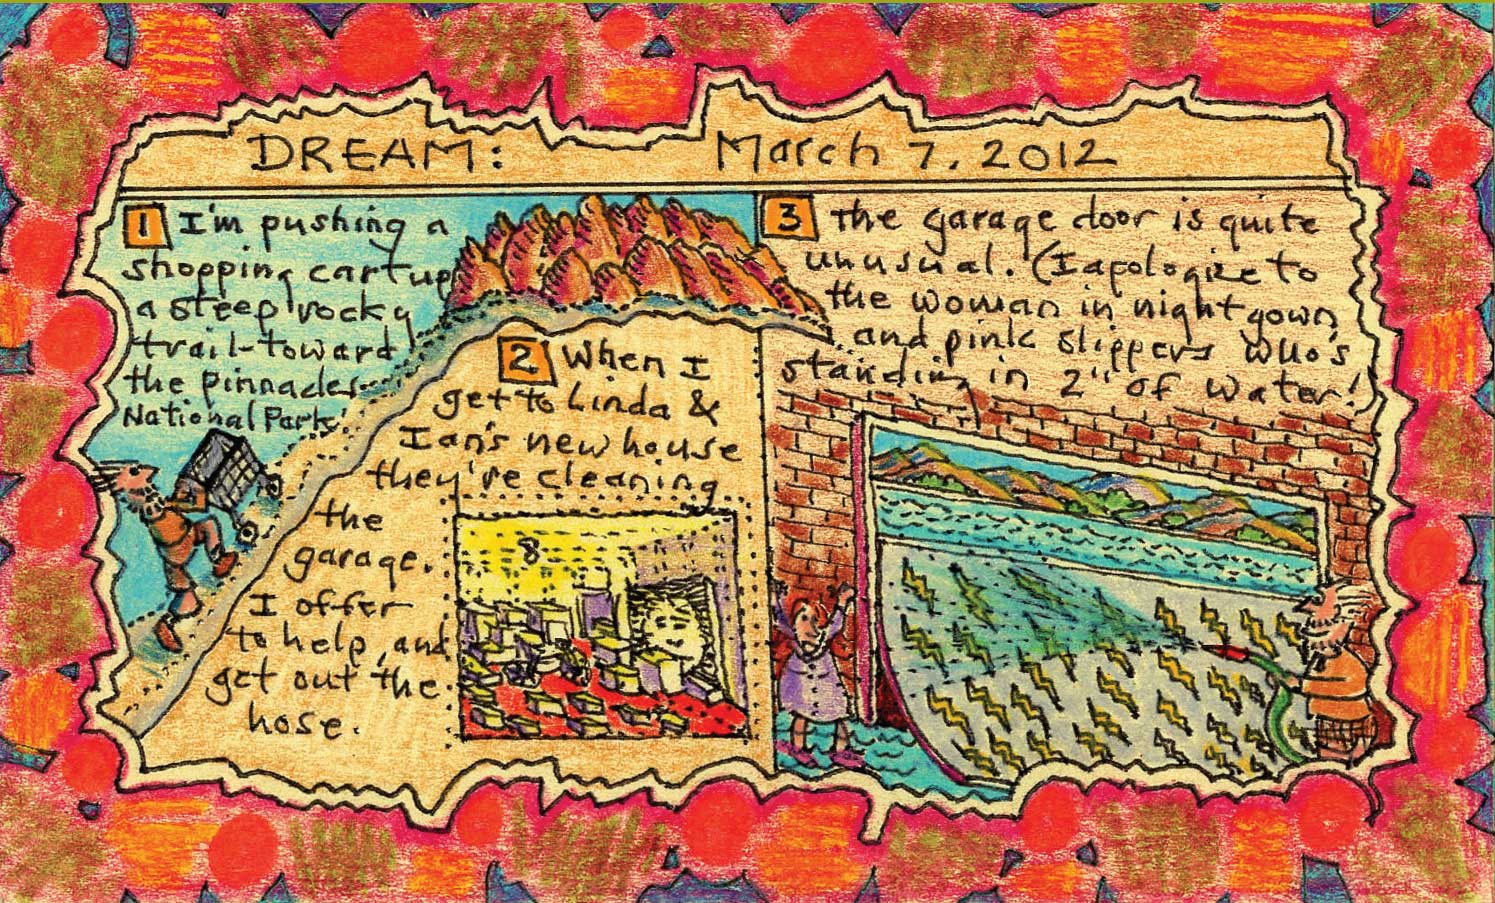 DREAM: March 7. 2012
1 I'm pushing a
shopping cart up
a steep rocky
trail-toward
the pinnacles
National Park.
2 When I
get to Linda &
Ian's new house
they're cleaning
the
garage.
I offer
to help, and
get out the
hose.
8
3 the garage door is quite
unusual. (I apologize to
the woman in nightgown
and pink slippers who's
standing in 2" of water!)